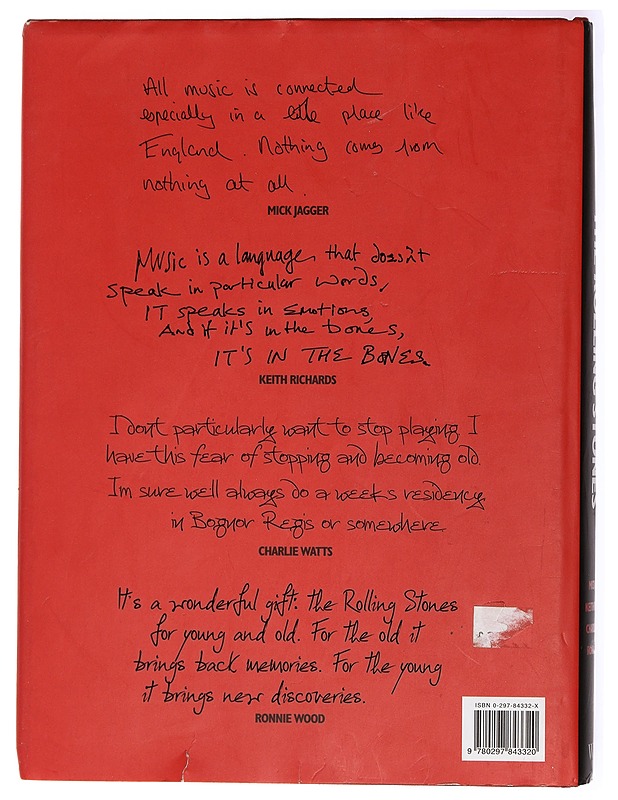 All music is connected
especially in a little place like
England. Nothing comes from
nothing at all.
MICK JAGGER
Music is a language, that doesn't
speak in particular words,
IT speaks in Emotions,
And if it's in the bones,
IT'S IN THE BONES.
KEITH RICHARDS
I dont particularly want to stop playing I
have this fear of stopping and becoming old.
Im sure well always do a weeks residency
in Bognor Regis or somewhere.
CHARLIE WATTS
It's a wonderful gift: the Rolling Stones
for young and old. For the old it
brings back memories. For the young
it brings new discoveries.
RONNIE WOOD
ISBN 0-297-84332-X
9 780297 843320
ROLLING STONES